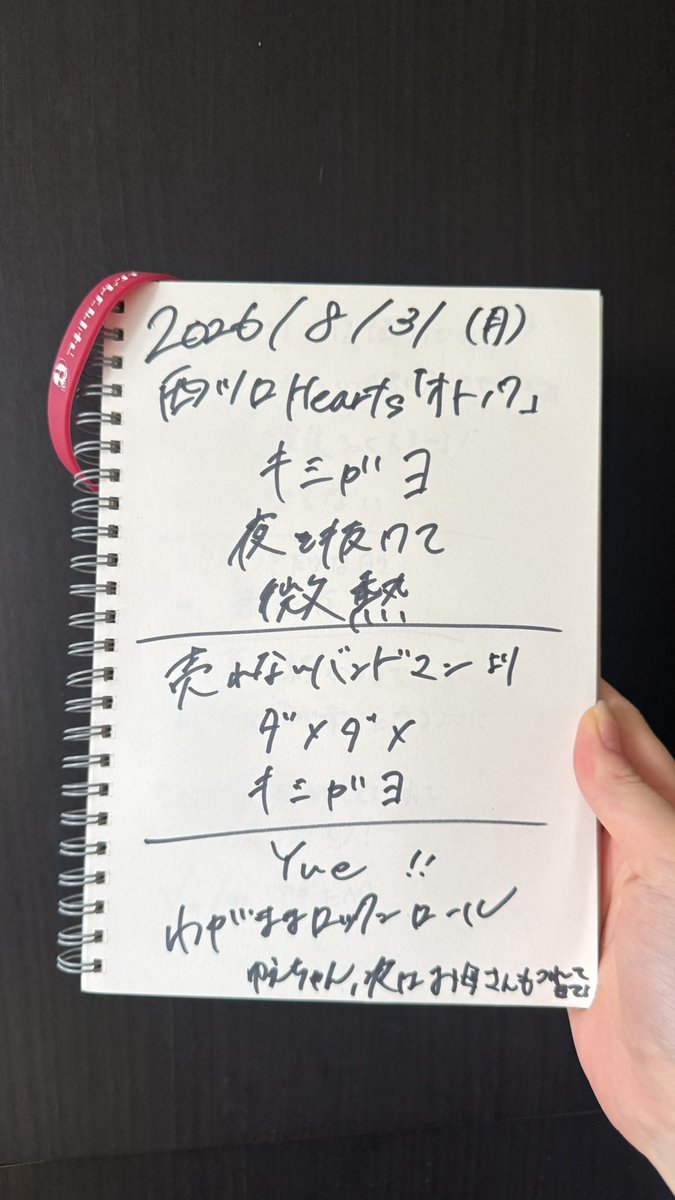 2026/8/3/(月)
西川口Hearts「オトノワ」
キミガヨ
夜を抜けて
微熱
売れないバンドマンより
ダメダメ
キミガヨ
Yue !!
わがままロックンロール
ゆえちゃん、次はお母さんもつれて
きて!